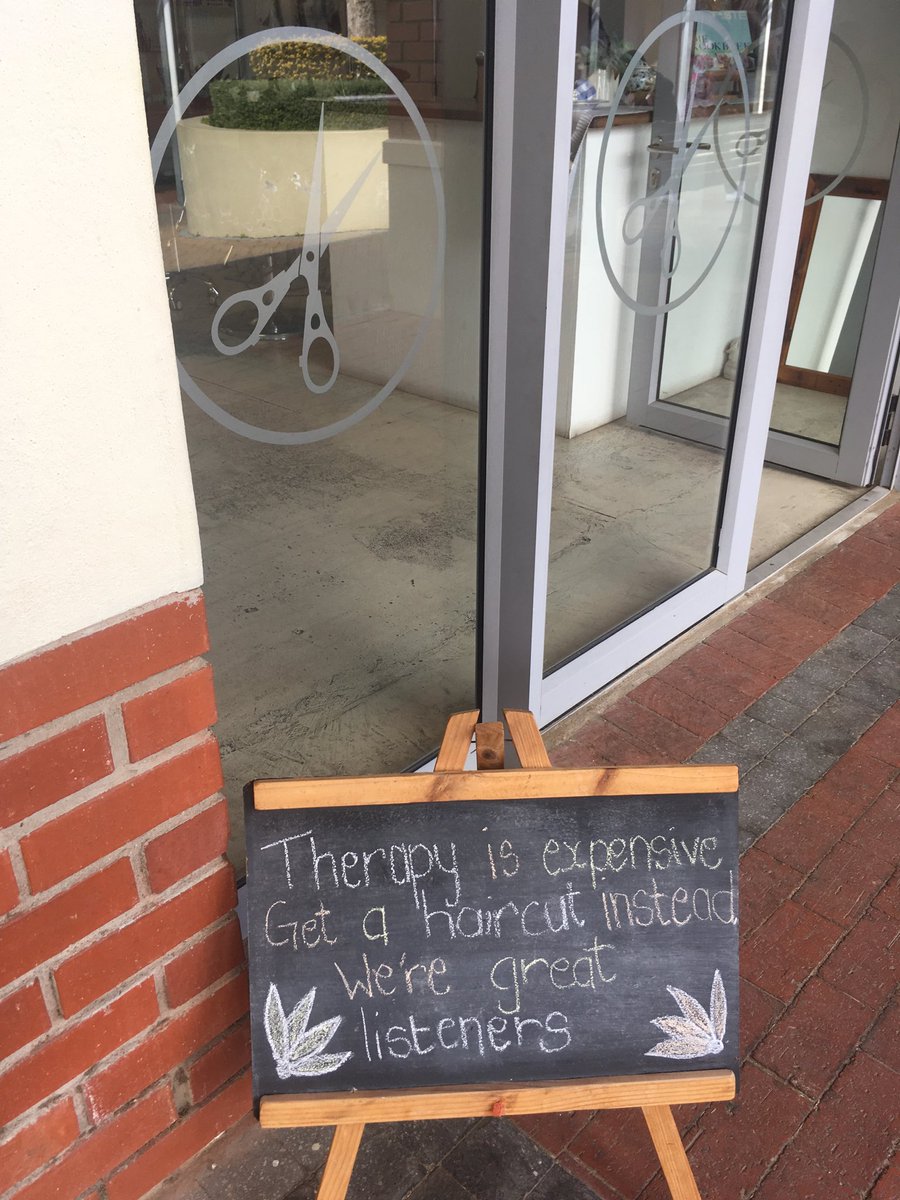 Therapy is expensive
Get a haircut instead
We're great
listeners